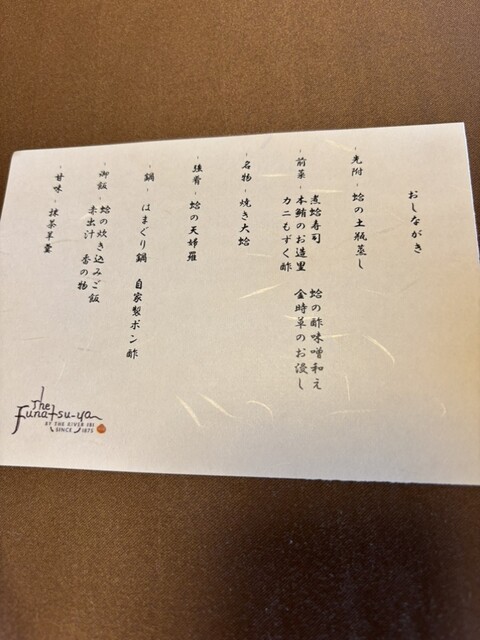 おしながき
- 先附 - 蛤の土瓶蒸し
- 前菜 - 煮蛤寿司 蛤の酢味噌和え
本鮪のお造里 金時草のお浸し
カニもずく酢
- 名物 - 焼き大蛤
- 強肴 - 蛤の天婦羅
- 鍋 - はまぐり鍋 自家製ポン酢
- 御飯 - 蛤の炊き込みご飯
赤出汁 香の物
- 甘味 - 抹茶羊羹
The
Funatsu-ya
BY THE RIVER IBI
SINCE 1875